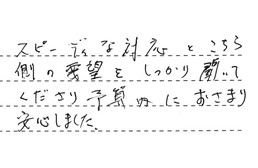 スピーディな対応とこちら
側の要望をしっかり聞いて
くださり予算内におさまり
安心しました。